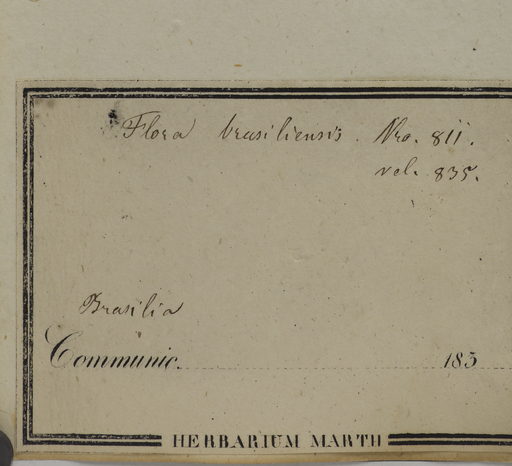 Flora brasiliensis. Nro. 811.
vel. 835.
Brasilia
Communic. 183
HERBARIUM MARTII